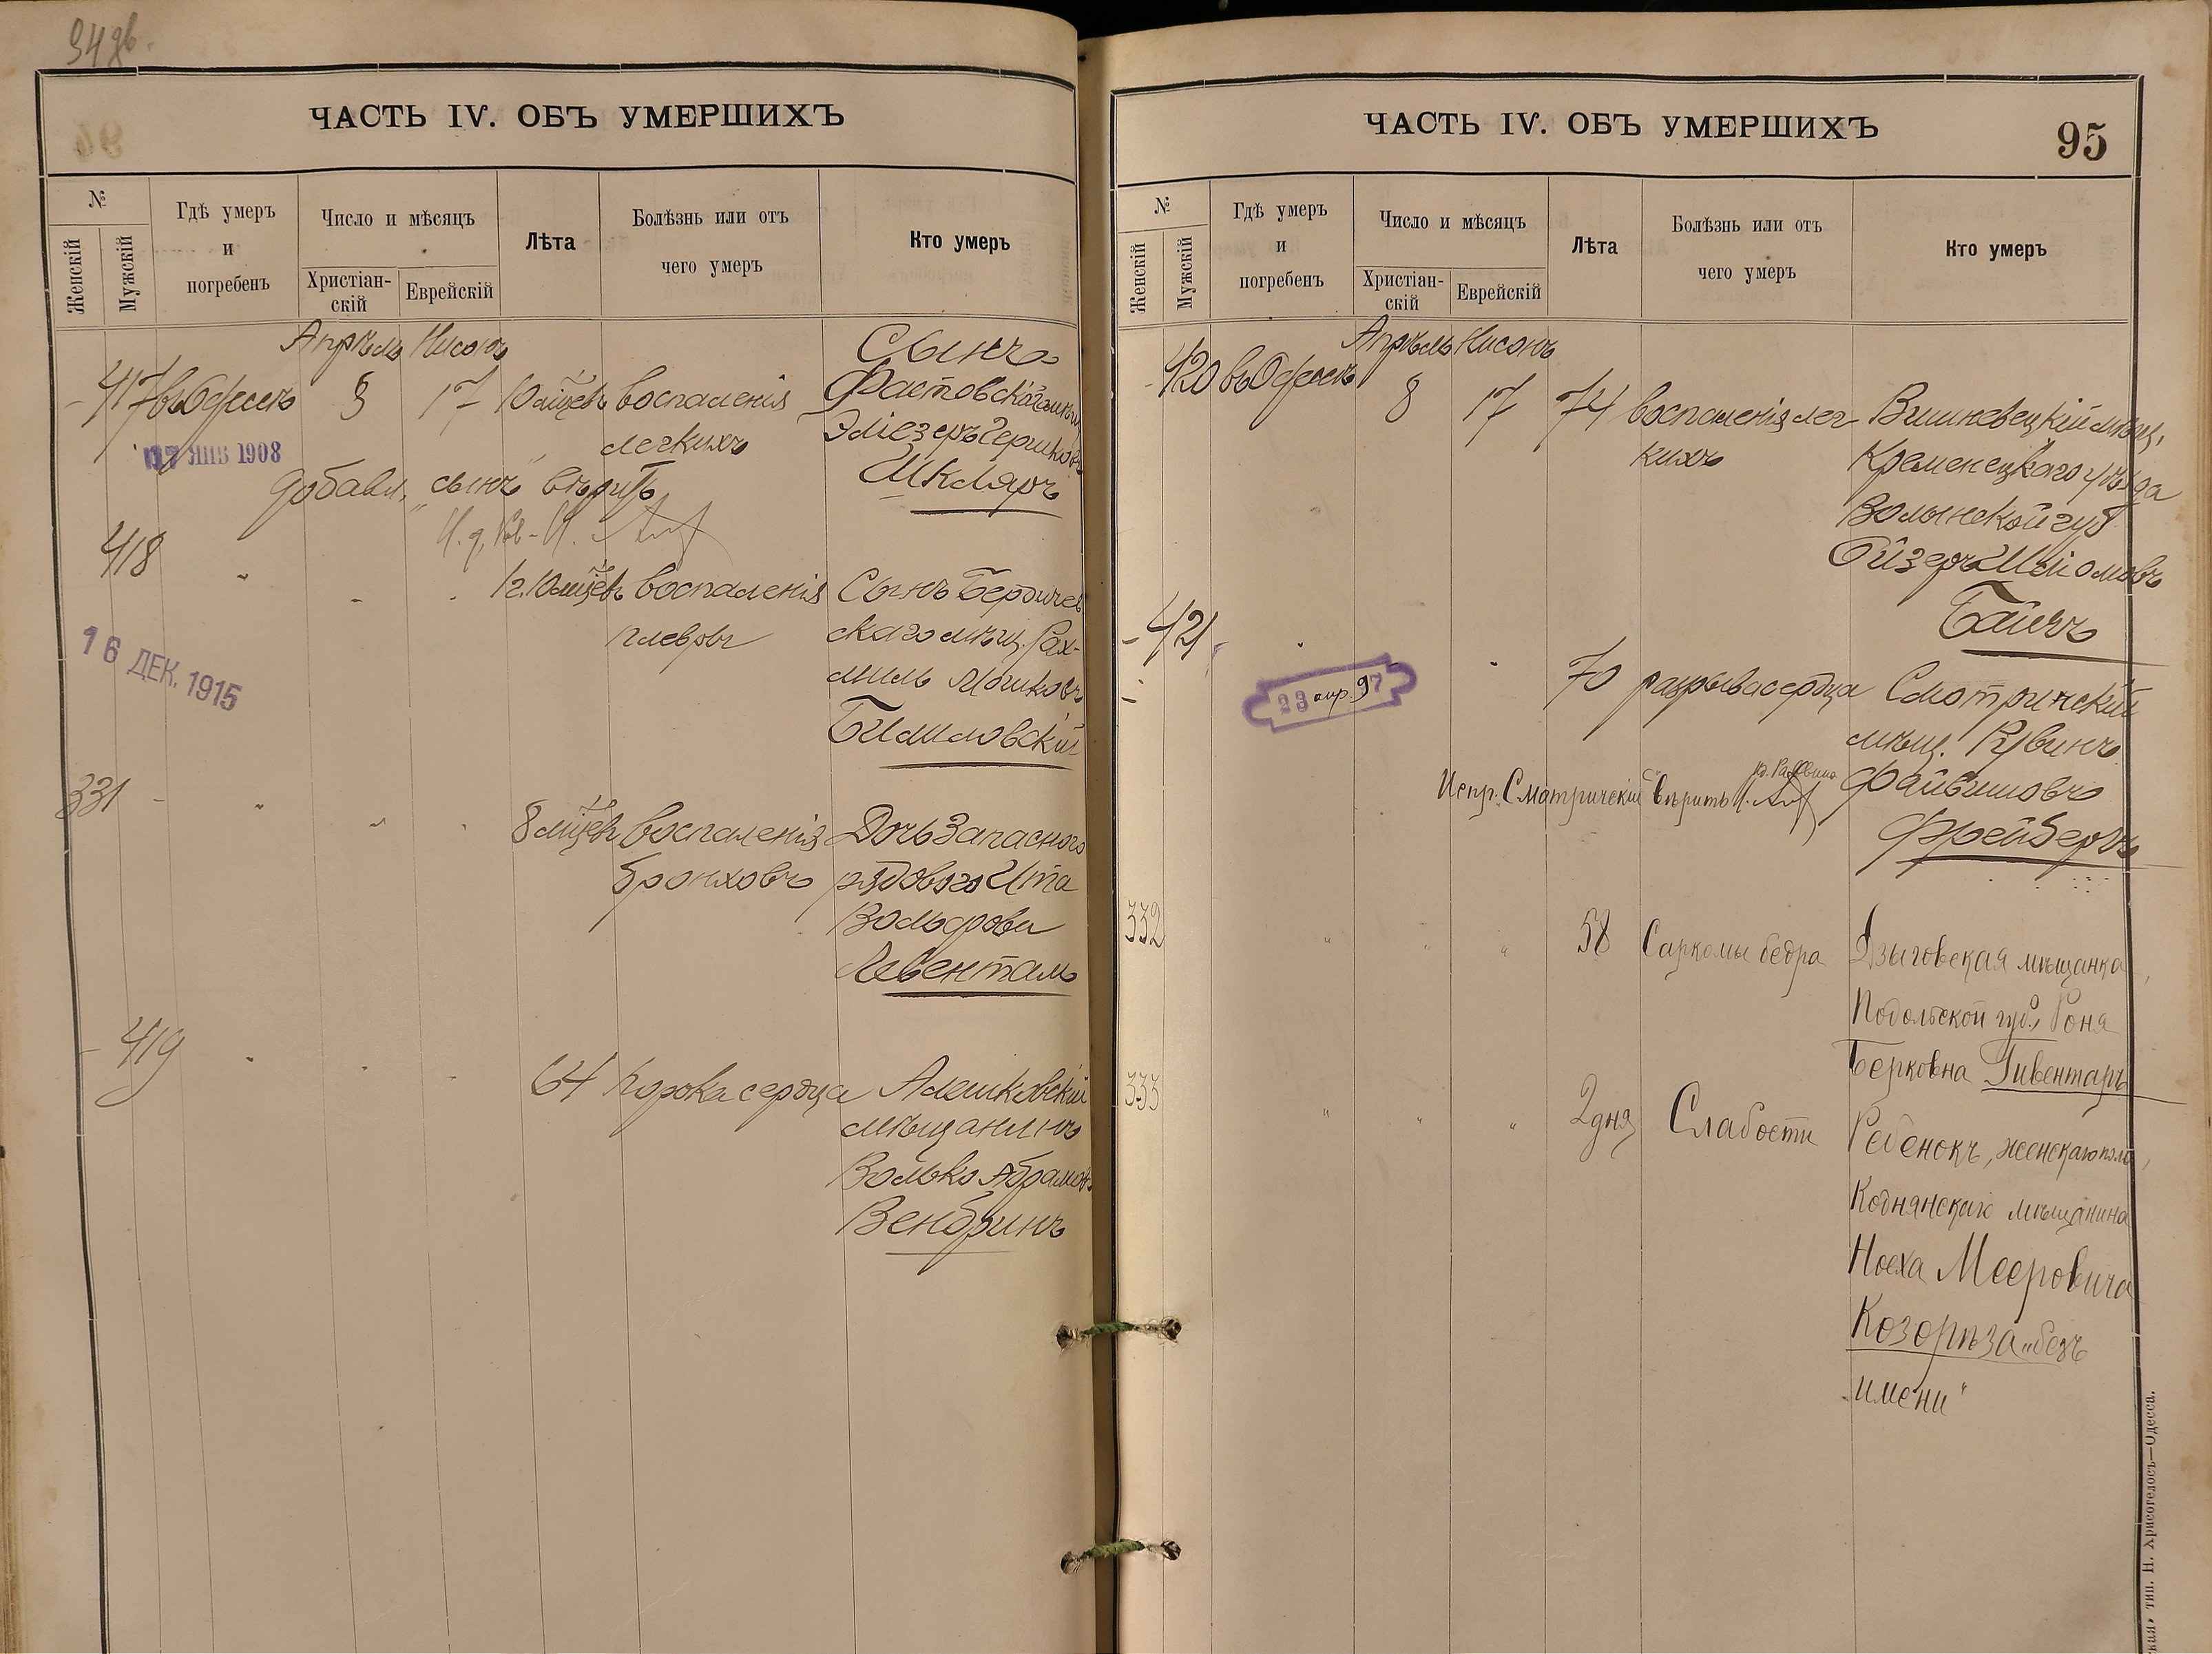 94 об.
ЧАСТЬ IV. ОБЪ УМЕРШИХЪ
№
Женскій
Мужскій
Гдѣ умеръ и погребенъ
Число и мѣсяцъ
Христіан-скій
Еврейскій
Лѣта
Болѣзнь или отъ чего умеръ
Кто умеръ
Апрѣль Нисонъ
417 въ Одессѣ 8 17 10 мѣсяцевъ воспаленія Сынъ
легкихъ Фастовскаго мѣщ.
Эліезеръ Гершковъ
Шкляръ
17 ЯНВ 1908
добавл. „сынъ" вѣритъ
418 " " " 1 г. 10 мѣсяцевъ воспаленія Сынъ Бердичев
плевры скаго мѣщ. Рах-
миль Мошковъ
16 ДЕК. 1915
331 " " " 8 мѣсяцевъ воспаленія Дочь Запаснаго
бронховъ рядового Ита
Вольфова
Левенталь
419 " " " 64 порока сердца Алешковскій
мѣщанинъ
Волько Абрамовъ
Вендринъ
ЧАСТЬ IV. ОБЪ УМЕРШИХЪ
95
№
Женскій
Мужскій
Гдѣ умеръ и погребенъ
Число и мѣсяцъ
Христіан-скій
Еврейскій
Лѣта
Болѣзнь или отъ чего умеръ
Кто умеръ
Апрѣль Нисонъ
420 въ Одессѣ 8 17 74 воспаленія лег Вишневецкій мѣщ.
кихъ Кременецкаго уѣзда
Волынской губ.
Ойзеръ Шліомовъ
421 " " " 70 разрыва сердца Смотринскій
23 апр. 97
мѣщ. Рувинъ
Испр. „Сматричскій" вѣритъ Файвишовъ
Фрейбергъ
332 " " " 58 Саркомы бедра Дзыговская мѣщанка
Подольской губ., Роня
Берковна Гивентаръ
333 " " " 2 дня Слабости Ребенокъ, женскаго пола,
Коднянскаго мѣщанина
Ноеха Мееровича
Козорѣза „безъ
имени"
тип. Н. Хрисогелосъ—Одесса.